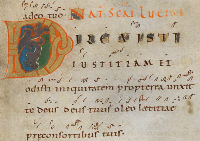 adeo tuo NAT SCAE LUCIAE
DILEXISTI
IUSTITIAM ET
odisti iniquitatem propterea unxit
te deus deus tuus oleo laetitiae
preconsortibus tuis